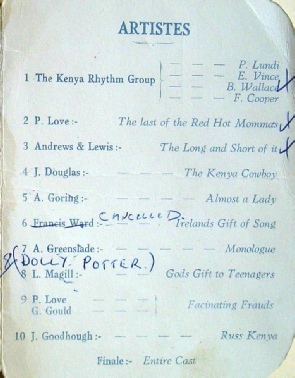 ARTISTES
P. Lundi
E. Vince
1 The Kenya Rhythm Group
B. Wallace
F. Cooper
2 P. Love:- The last of the Red Hot Mommas
3 Andrews & Lewis:- The Long and Short of it
4 J. Douglas:- The Kenya Cowboy
5 A. Goring:- Almost a Lady
6 Francis Ward CANCELLED. Irelands Gift of Song
7 A. Greenslade:- Monologue
8 (DOLLY POTTER)
8 L. Magill:- Gods Gift to Teenagers
9 P. Love
G. Gould
Facinating Frauds
10 J. Goodhough:- Russ Kenya
Finale:- Entire Cast